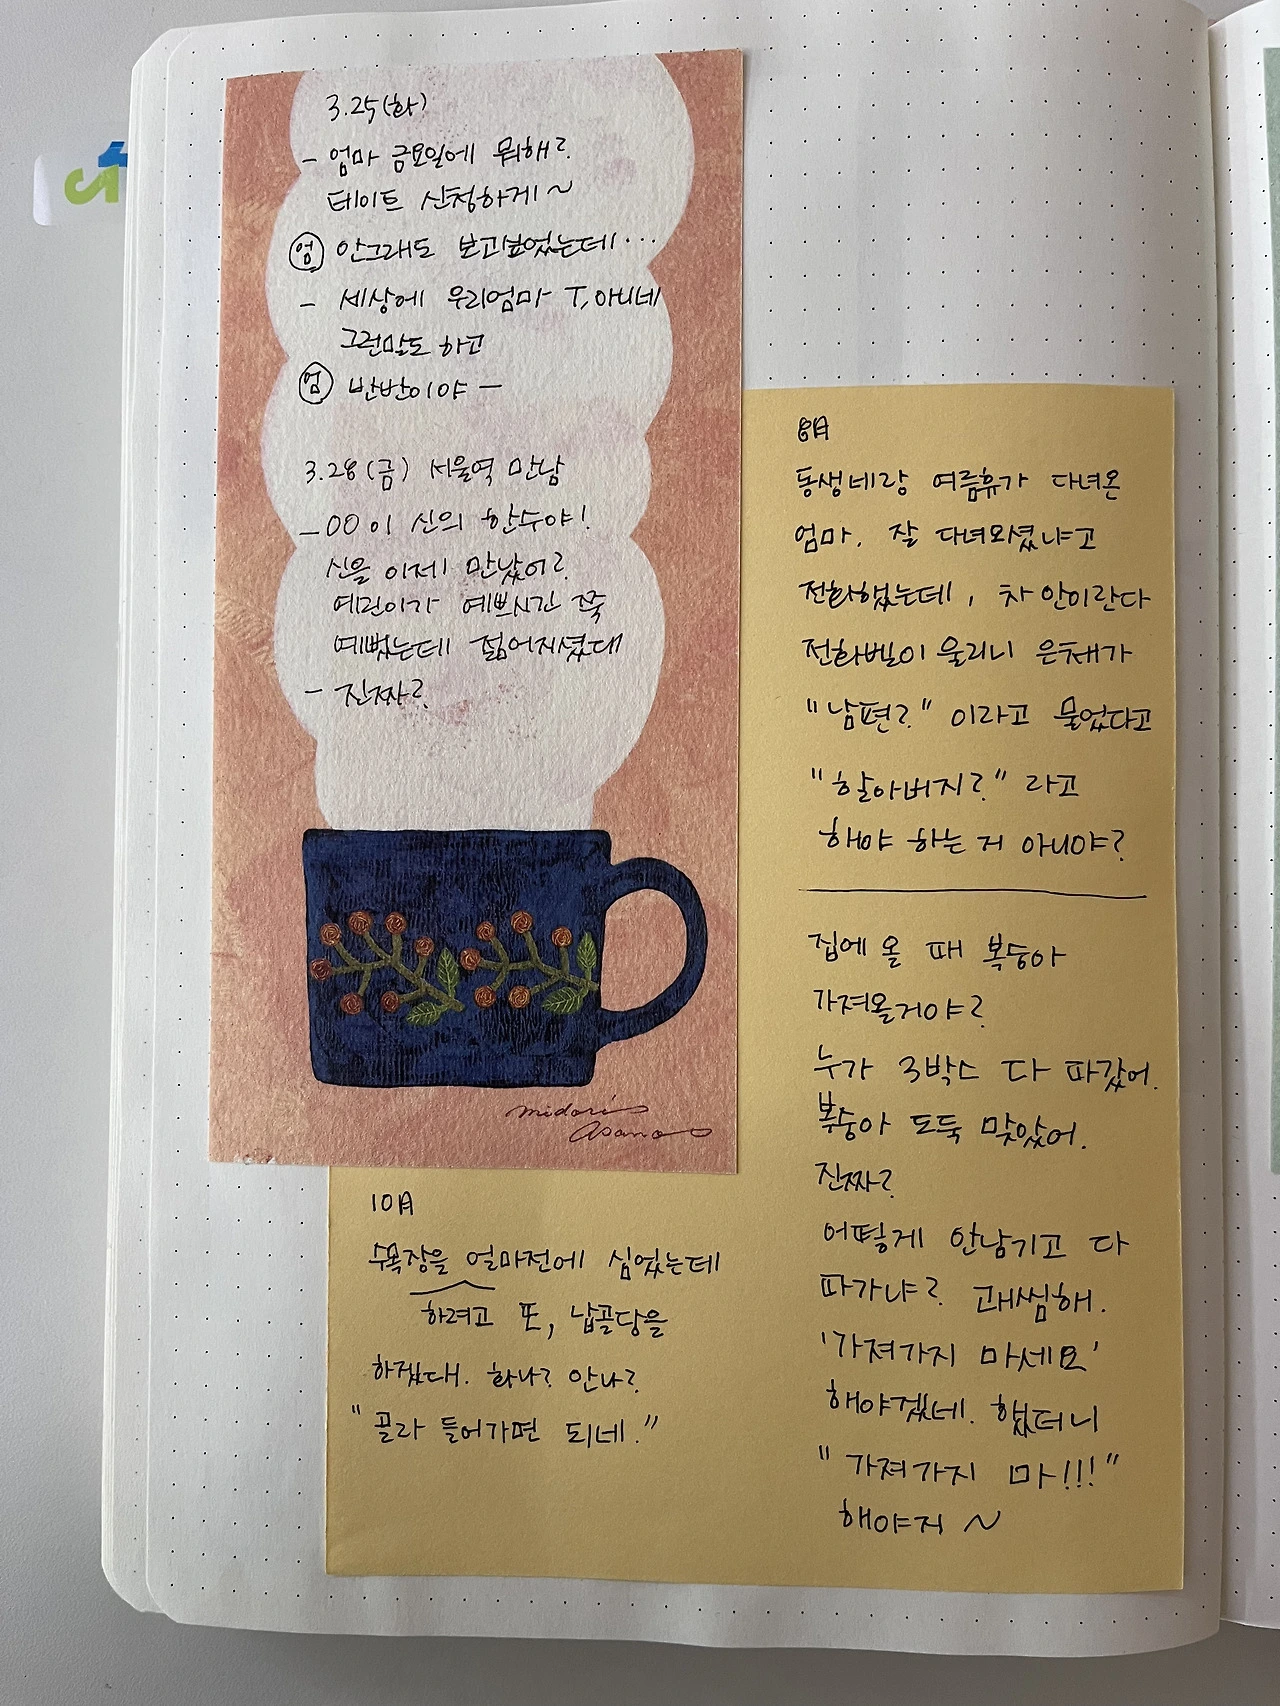 3.25(화)
- 엄마 금요일에 뭐해?
데이트 신청하게~
엄 안그래도 보고싶었는데...
- 세상에 우리엄마 T, 아니네
그런말도 하고
엄 반반이야 -
3.28(금) 서울역 만남
- 00이 신의 한수야!
신을 이제 만났어?
예린이가 예쁘시긴 쭉
예뻤는데 젊어지셨대
- 진짜?
midori
asano
8月
동생네랑 여름휴가 다녀온
엄마. 잘 다녀오셨냐고
전화했는데, 차 안이란다
전화벨이 울리니 은채가
"남편?" 이라고 물었다고
"할아버지?" 라고
해야 하는 거 아니야?
집에 올 때 복숭아
가져올거야?
누가 3박스 다 따갔어.
복숭아 도둑 맞았어.
진짜?
어떻게 안남기고 다
따가냐? 괘씸해.
'가져가지 마세요'
해야겠네. 했더니
"가져가지 마!!!"
해야지 ~
10月
수목장을 얼마전에 심었는데
하려고 또, 납골당을
하겠대. 화나? 안나?
"골라 들어가면 되네."